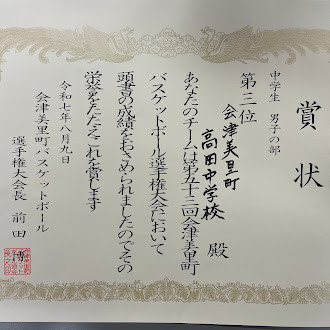 賞状
中学生 男子の部
第三位
会津美里町
高田中学校 殿
あなたのチームは第五十三回会津美里町
バスケットボール選手権大会において
頭書の成績をおさめられましたのでその
栄誉をたたえこれを賞します
令和七年八月九日
会津美里町バスケットボール
選手権大会長 前田 博